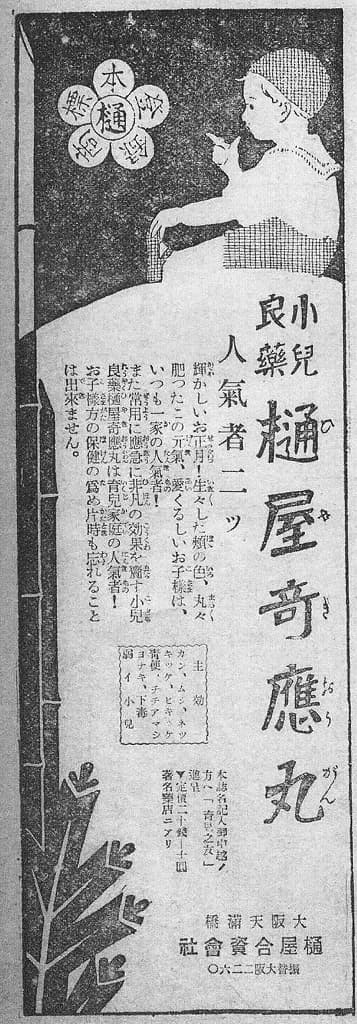 小兒
良藥
樋屋奇應丸
ひやきおうがん
人氣者二ッ
輝かしいお正月！生々した頬の色、丸々
肥つたこの元氣、愛くるしいお子樣は、
いつも一家の人氣者！
また常用に應急に非凡の効果を齎す小兒
良藥樋屋奇應丸は育兒家庭の人氣者！
お子樣方の保健の爲め片時も忘れること
は出來ません。
主効
カン、ムシ、ネツ
キツケ、ヒキツケ
靑便、チチアマシ
ヨナキ、下毒
弱イ小兒
本誌名記入御申越ノ
方ヘ「育兒之友」
進呈
▼定價二十錢—十圓
著名藥店ニアリ
大阪天滿橋
樋屋合資會社
振替大阪二二六〇
本
登
錄
商
標
樋